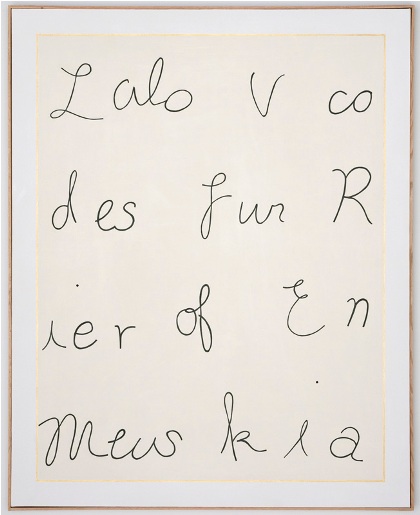 Lalo V co
des fur R
ier of En
meus kia